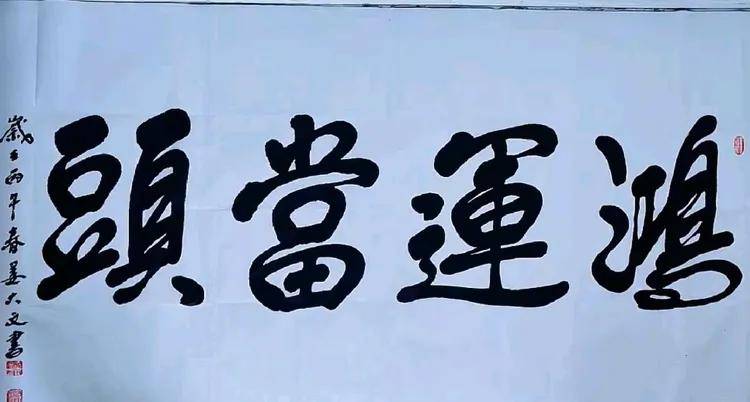 鴻運當頭
歲在丙午春姜大文書